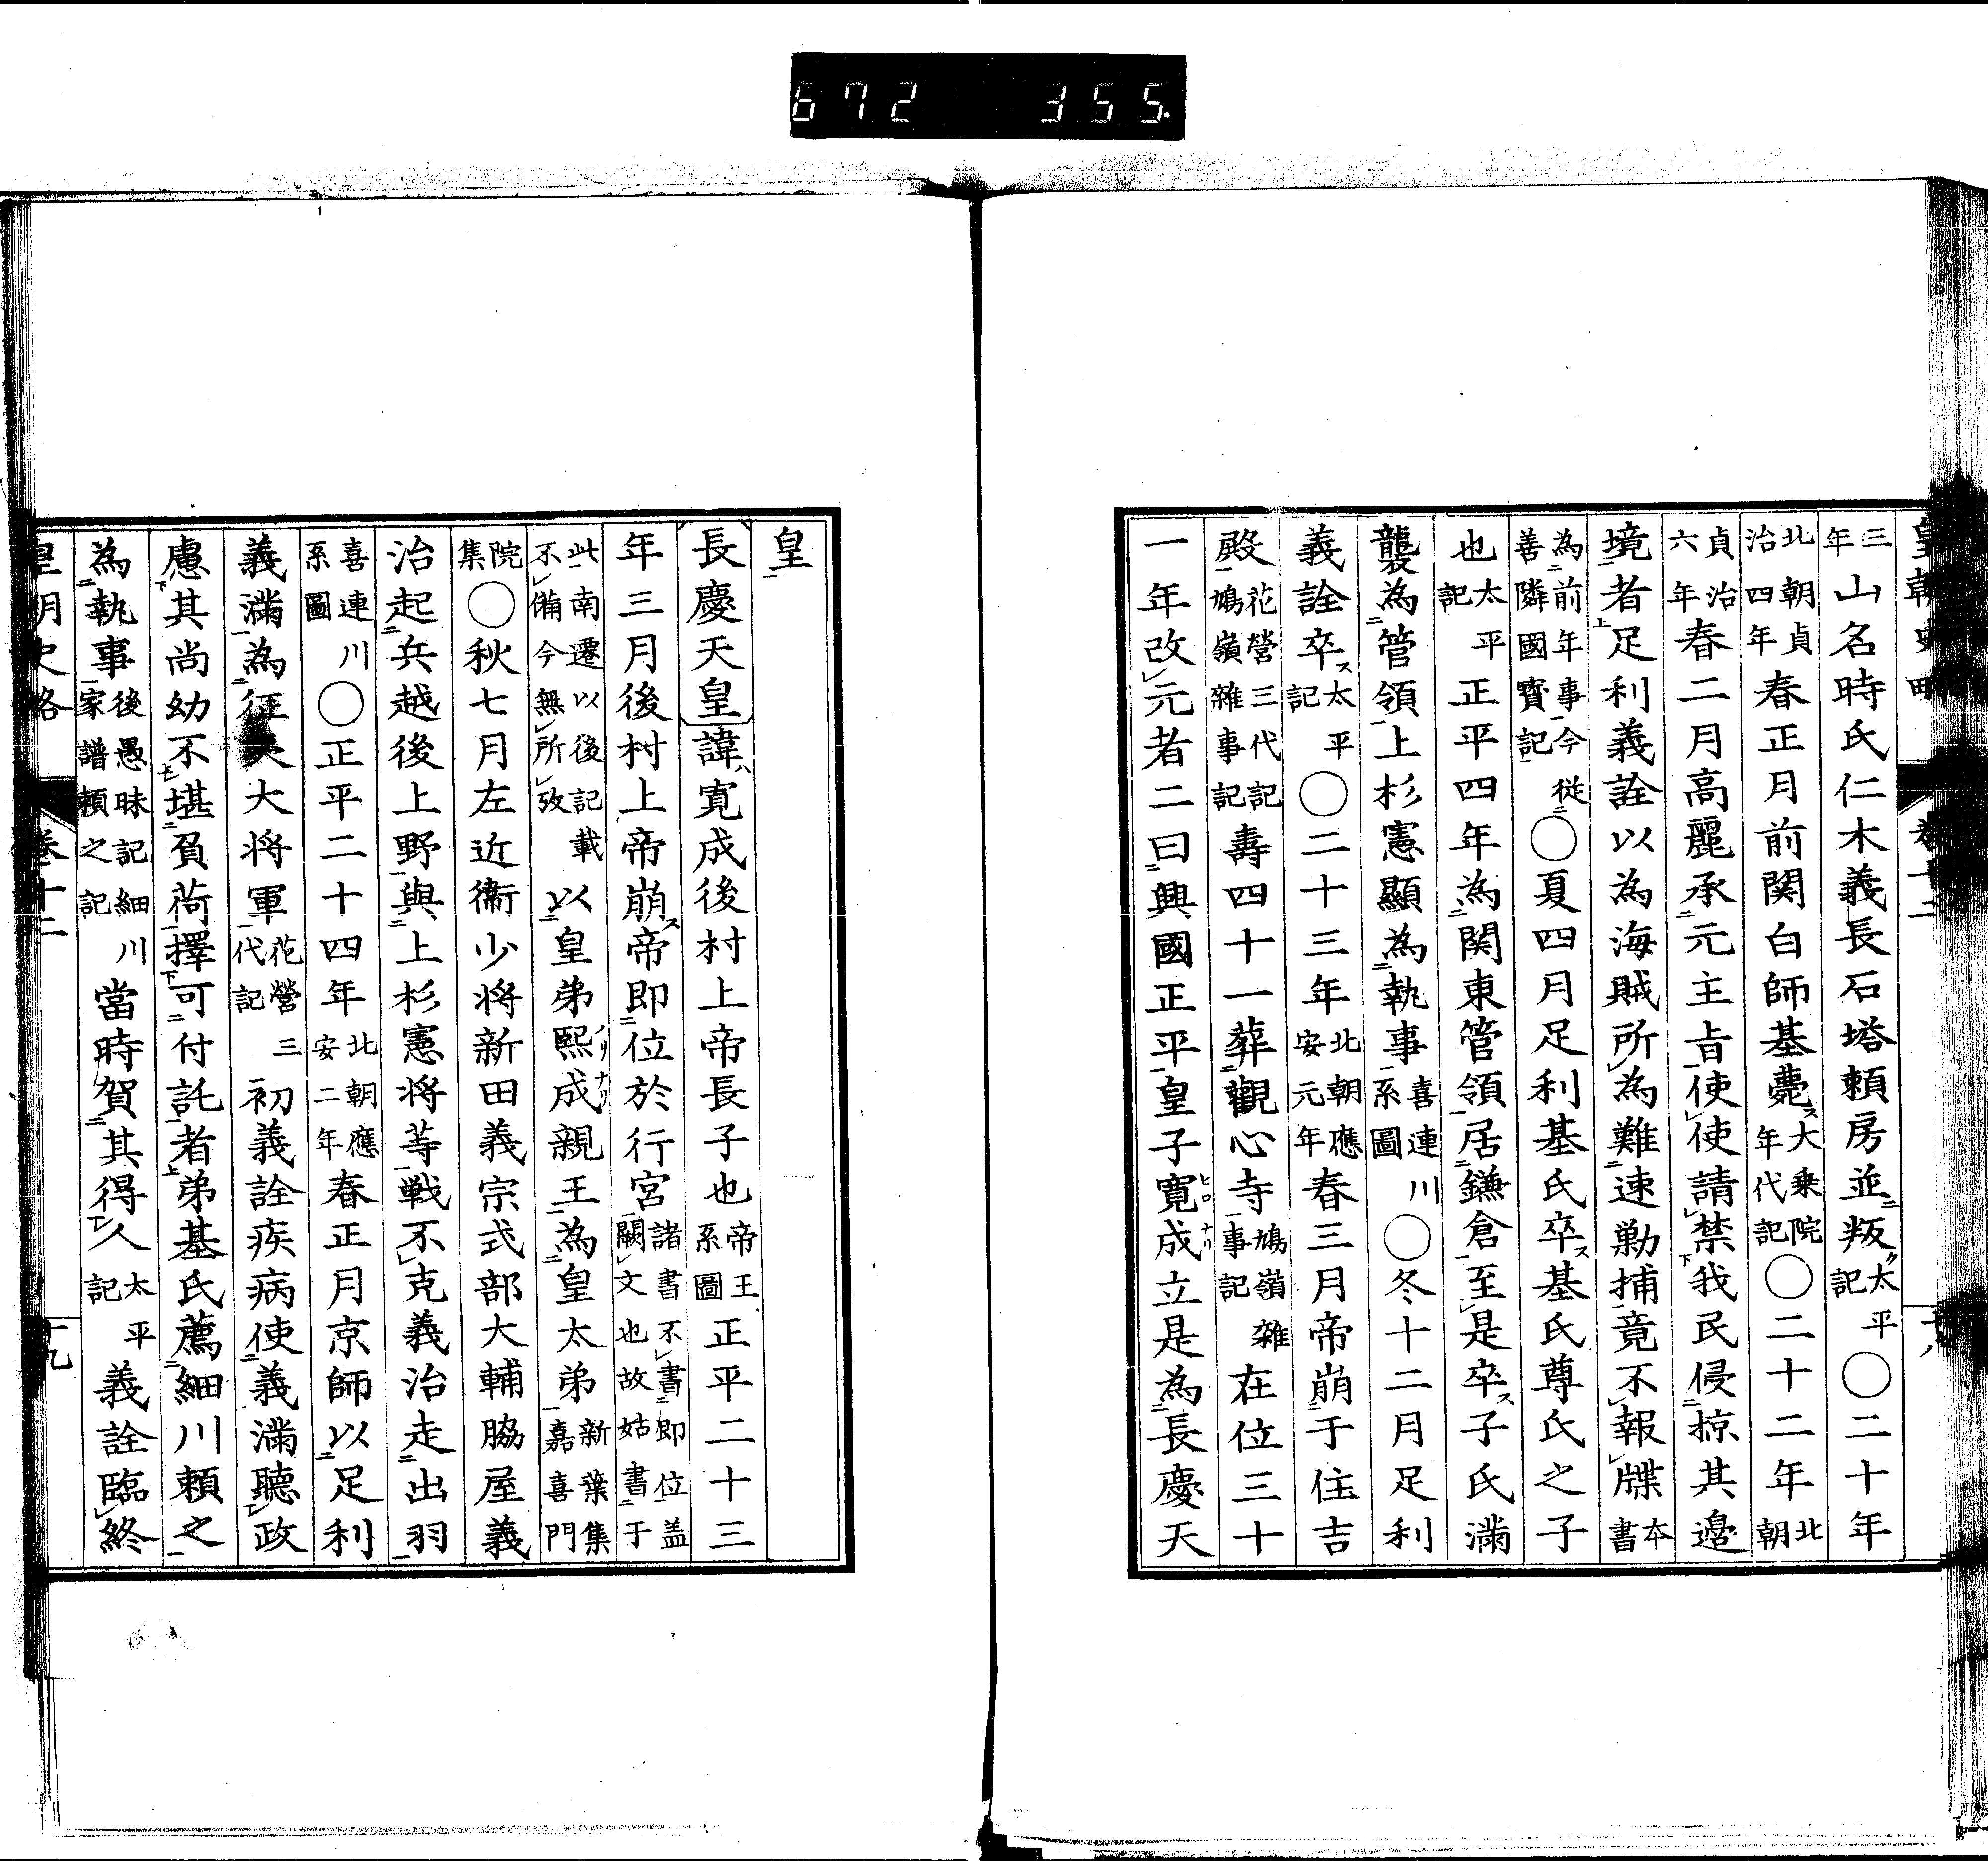 皇朝史略　卷十二
三年山名時氏仁木義長石塔頼房並叛ク太平記○二十年
北朝貞治四年春正月前関白師基薨ス大乗院年代記○二十二年北朝
貞治六年春二月高麗承二元主旨一使レ使請レ禁下我民侵二掠其邊
境一者上足利義詮以為海賊所レ為難二速勦捕一竟不レ報レ牒本書
為二前年事一今從二善隣國寳記一○夏四月足利基氏卒ス基氏尊氏之子
也太平記正平四年為二関東管領一居二鎌倉一至レ是卒ス子氏滿
襲為二管領一上杉憲顯為二執事一喜連川系圖○冬十二月足利
義詮卒ス太平記○二十三年北朝應安元年春三月帝崩二于住吉
殿一花營三代記鳩嶺雜事記壽四十一葬二觀心寺一鳩嶺雜事記在位三十
一年改レ元者二曰二興國正平一皇子寛ヒロ成ナリ立是為二長慶天
皇一
長慶天皇諱ハ寛成後村上帝長子也帝王系圖正平二十三
年三月後村上帝崩ス帝即二位於行宮一諸書不レ書二即位一盖闕レ文也故姑書二于
此一南遷以後記載不レ備今無レ所レ攷以二皇弟熙ノリ成ナリ親王一為二皇太弟一新葉集嘉喜門
院集○秋七月左近衞少将新田義宗式部大輔脇屋義
治起二兵越後上野一與二上杉憲将等一戦不レ克義治走二出羽一
喜連川系圖○正平二十四年北朝應安二年春正月京師以二足利
義滿一為二征夷大将軍一花營三代記初義詮疾病使二義滿聽一レ政
慮下其尚幼不上レ堪二負荷一擇下可二付託一者上弟基氏薦二細川頼之一
為二執事一後愚昧記細川家譜頼之記當時賀二其得一レ人太平記義詮臨レ終
皇朝史略　卷十二　十九